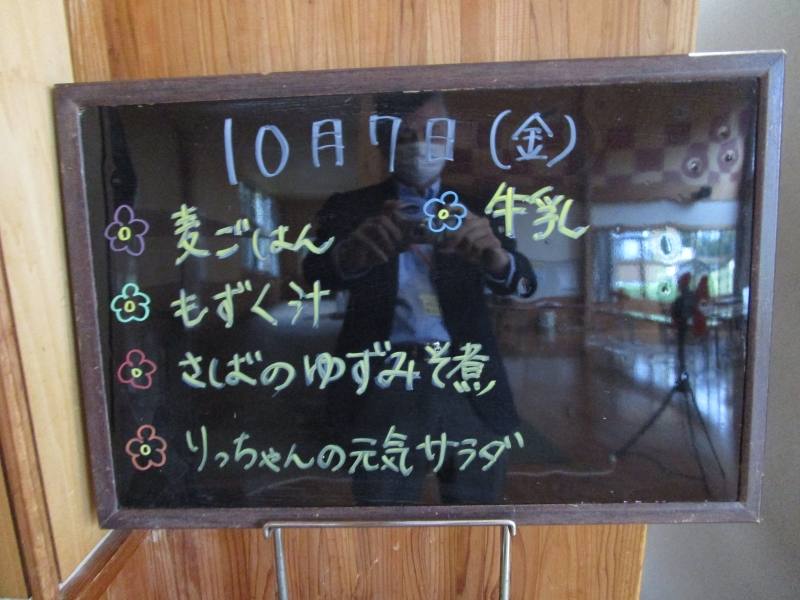 10月7日(金)
麦ごはん
牛乳
もずく汁
さばのゆずみそ煮
りっちゃんの元気サラダ